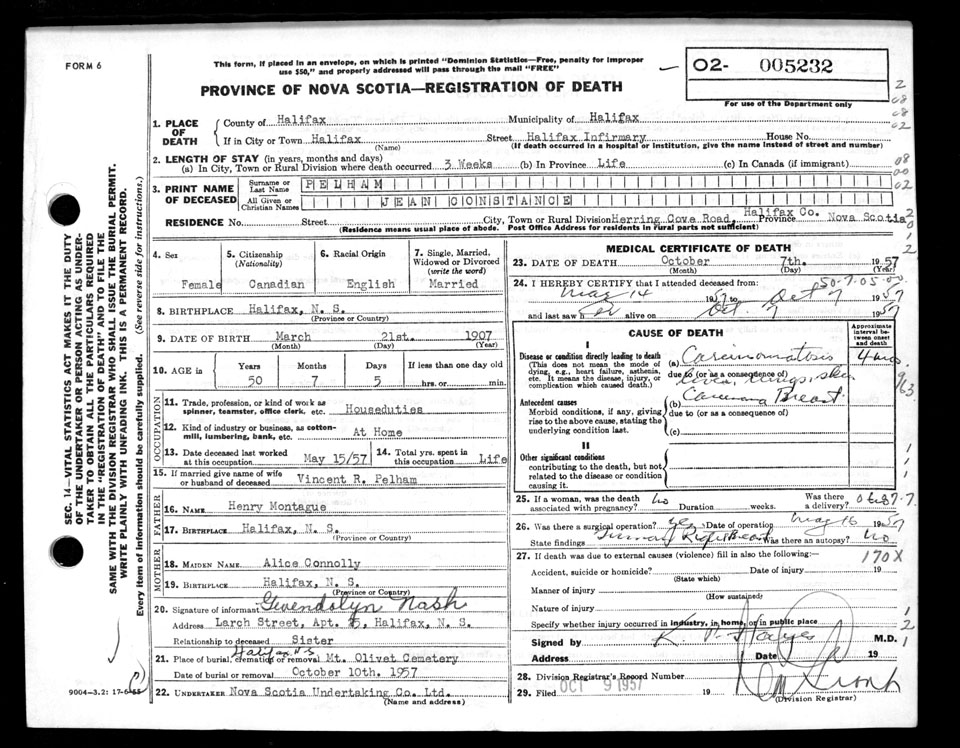 FORM 6
This form, if placed in an envelope, on which is printed "Dominion Statistics—Free, penalty for improper
use $50," and properly addressed will pass through the mail "FREE"
02- 005232
For use of the Department only
PROVINCE OF NOVA SCOTIA—REGISTRATION OF DEATH
1. PLACE OF DEATH County of Halifax Municipality of Halifax
If in City or Town Halifax Street Halifax Infirmary House No.
(Name) (If death occurred in a hospital or institution, give the name instead of street and number)
2. LENGTH OF STAY (in years, months and days)
(a) In City, Town or Rural Division where death occurred 3 Weeks (b) In Province Life (c) In Canada (if immigrant)
3. PRINT NAME OF DECEASED Surname or Last Name PELHAM
All Given or Christian Names JEAN CONSTANCE
RESIDENCE No. Street City, Town or Rural Division Herring Cove Road, Halifax Co. Province Nova Scotia
(Residence means usual place of abode. Post Office Address for residents in rural parts not sufficient)
4. Sex Female
5. Citizenship (Nationality) Canadian
6. Racial Origin English
7. Single, Married, Widowed or Divorced (write the word) Married
8. BIRTHPLACE Halifax, N. S.
(Province or Country)
9. DATE OF BIRTH March 21st. 1907
(Month) (Day) (Year)
10. AGE in Years Months Days If less than one day old
50 7 5 hrs. or min.
OCCUPATION
11. Trade, profession, or kind of work as spinner, teamster, office clerk, etc. Houseduties
12. Kind of industry or business, as cotton-mill, lumbering, bank, etc. At Home
13. Date deceased last worked at this occupation May 15/57 14. Total yrs. spent in this occupation Life
15. If married give name of wife or husband of deceased Vincent R. Pelham
FATHER
16. NAME Henry Montague
17. BIRTHPLACE Halifax, N. S.
(Province or Country)
MOTHER
18. MAIDEN NAME Alice Connolly
19. BIRTHPLACE Halifax, N. S.
(Province or Country)
20. Signature of informant Gwendolyn Nash
Address Larch Street, Apt. 5, Halifax, N. S.
Relationship to deceased Sister
Halifax N.S.
21. Place of burial, cremation or removal Mt. Olivet Cemetery
Date of burial or removal October 10th. 1957
22. UNDERTAKER Nova Scotia Undertaking Co. Ltd.
(Name and address)
MEDICAL CERTIFICATE OF DEATH
23. DATE OF DEATH October 7th. 1957
(Month) (Day) (Year)
24. I HEREBY CERTIFY that I attended deceased from:
50-7-05-00
May 14 1957 to Oct 7 1957
and last saw her alive on Oct. 7 1957
CAUSE OF DEATH
Approximate interval between onset and death
I
Disease or condition directly leading to death
(This does not mean the mode of dying, e.g., heart failure, asthenia, etc. It means the disease, injury, or complication which caused death.)
(a) Carcinomatosis 4 mos
due to (or as a consequence of)
liver, lungs, skin
Antecedent causes
Morbid conditions, if any, giving rise to the above cause, stating the underlying condition last.
(b) Carcinoma Breast
due to (or as a consequence of)
(c)
II
Other significant conditions
contributing to the death, but not related to the disease or condition causing it.
25. If a woman, was the death associated with pregnancy? No Duration weeks. Was there a delivery?
26. Was there a surgical operation? Yes Date of operation May 16 1957
State findings Tumour Right Breast Was there an autopsy? No
27. If death was due to external causes (violence) fill in also the following:—
170X
Accident, suicide or homicide? Date of injury 19
(State which)
Manner of injury
(How sustained)
Nature of injury
Specify whether injury occurred in industry, in home, or in public place
Signed by M.D.
Address Date 19
28. Division Registrar's Record Number
29. Filed OCT 9 1957 19
(Division Registrar)
SEC. 14—VITAL STATISTICS ACT MAKES IT THE DUTY
OF THE UNDERTAKER OR PERSON ACTING AS UNDER-
TAKER TO OBTAIN ALL THE PARTICULARS REQUIRED
IN THE "REGISTRATION OF DEATH" AND TO FILE THE
SAME WITH THE DIVISION REGISTRAR WHO SHALL ISSUE THE BURIAL PERMIT.
WRITE PLAINLY WITH UNFADING INK. THIS IS A PERMANENT RECORD.
Every item of information should be carefully supplied. (See reverse side for instructions.)
9004-3.2: 17-6-55